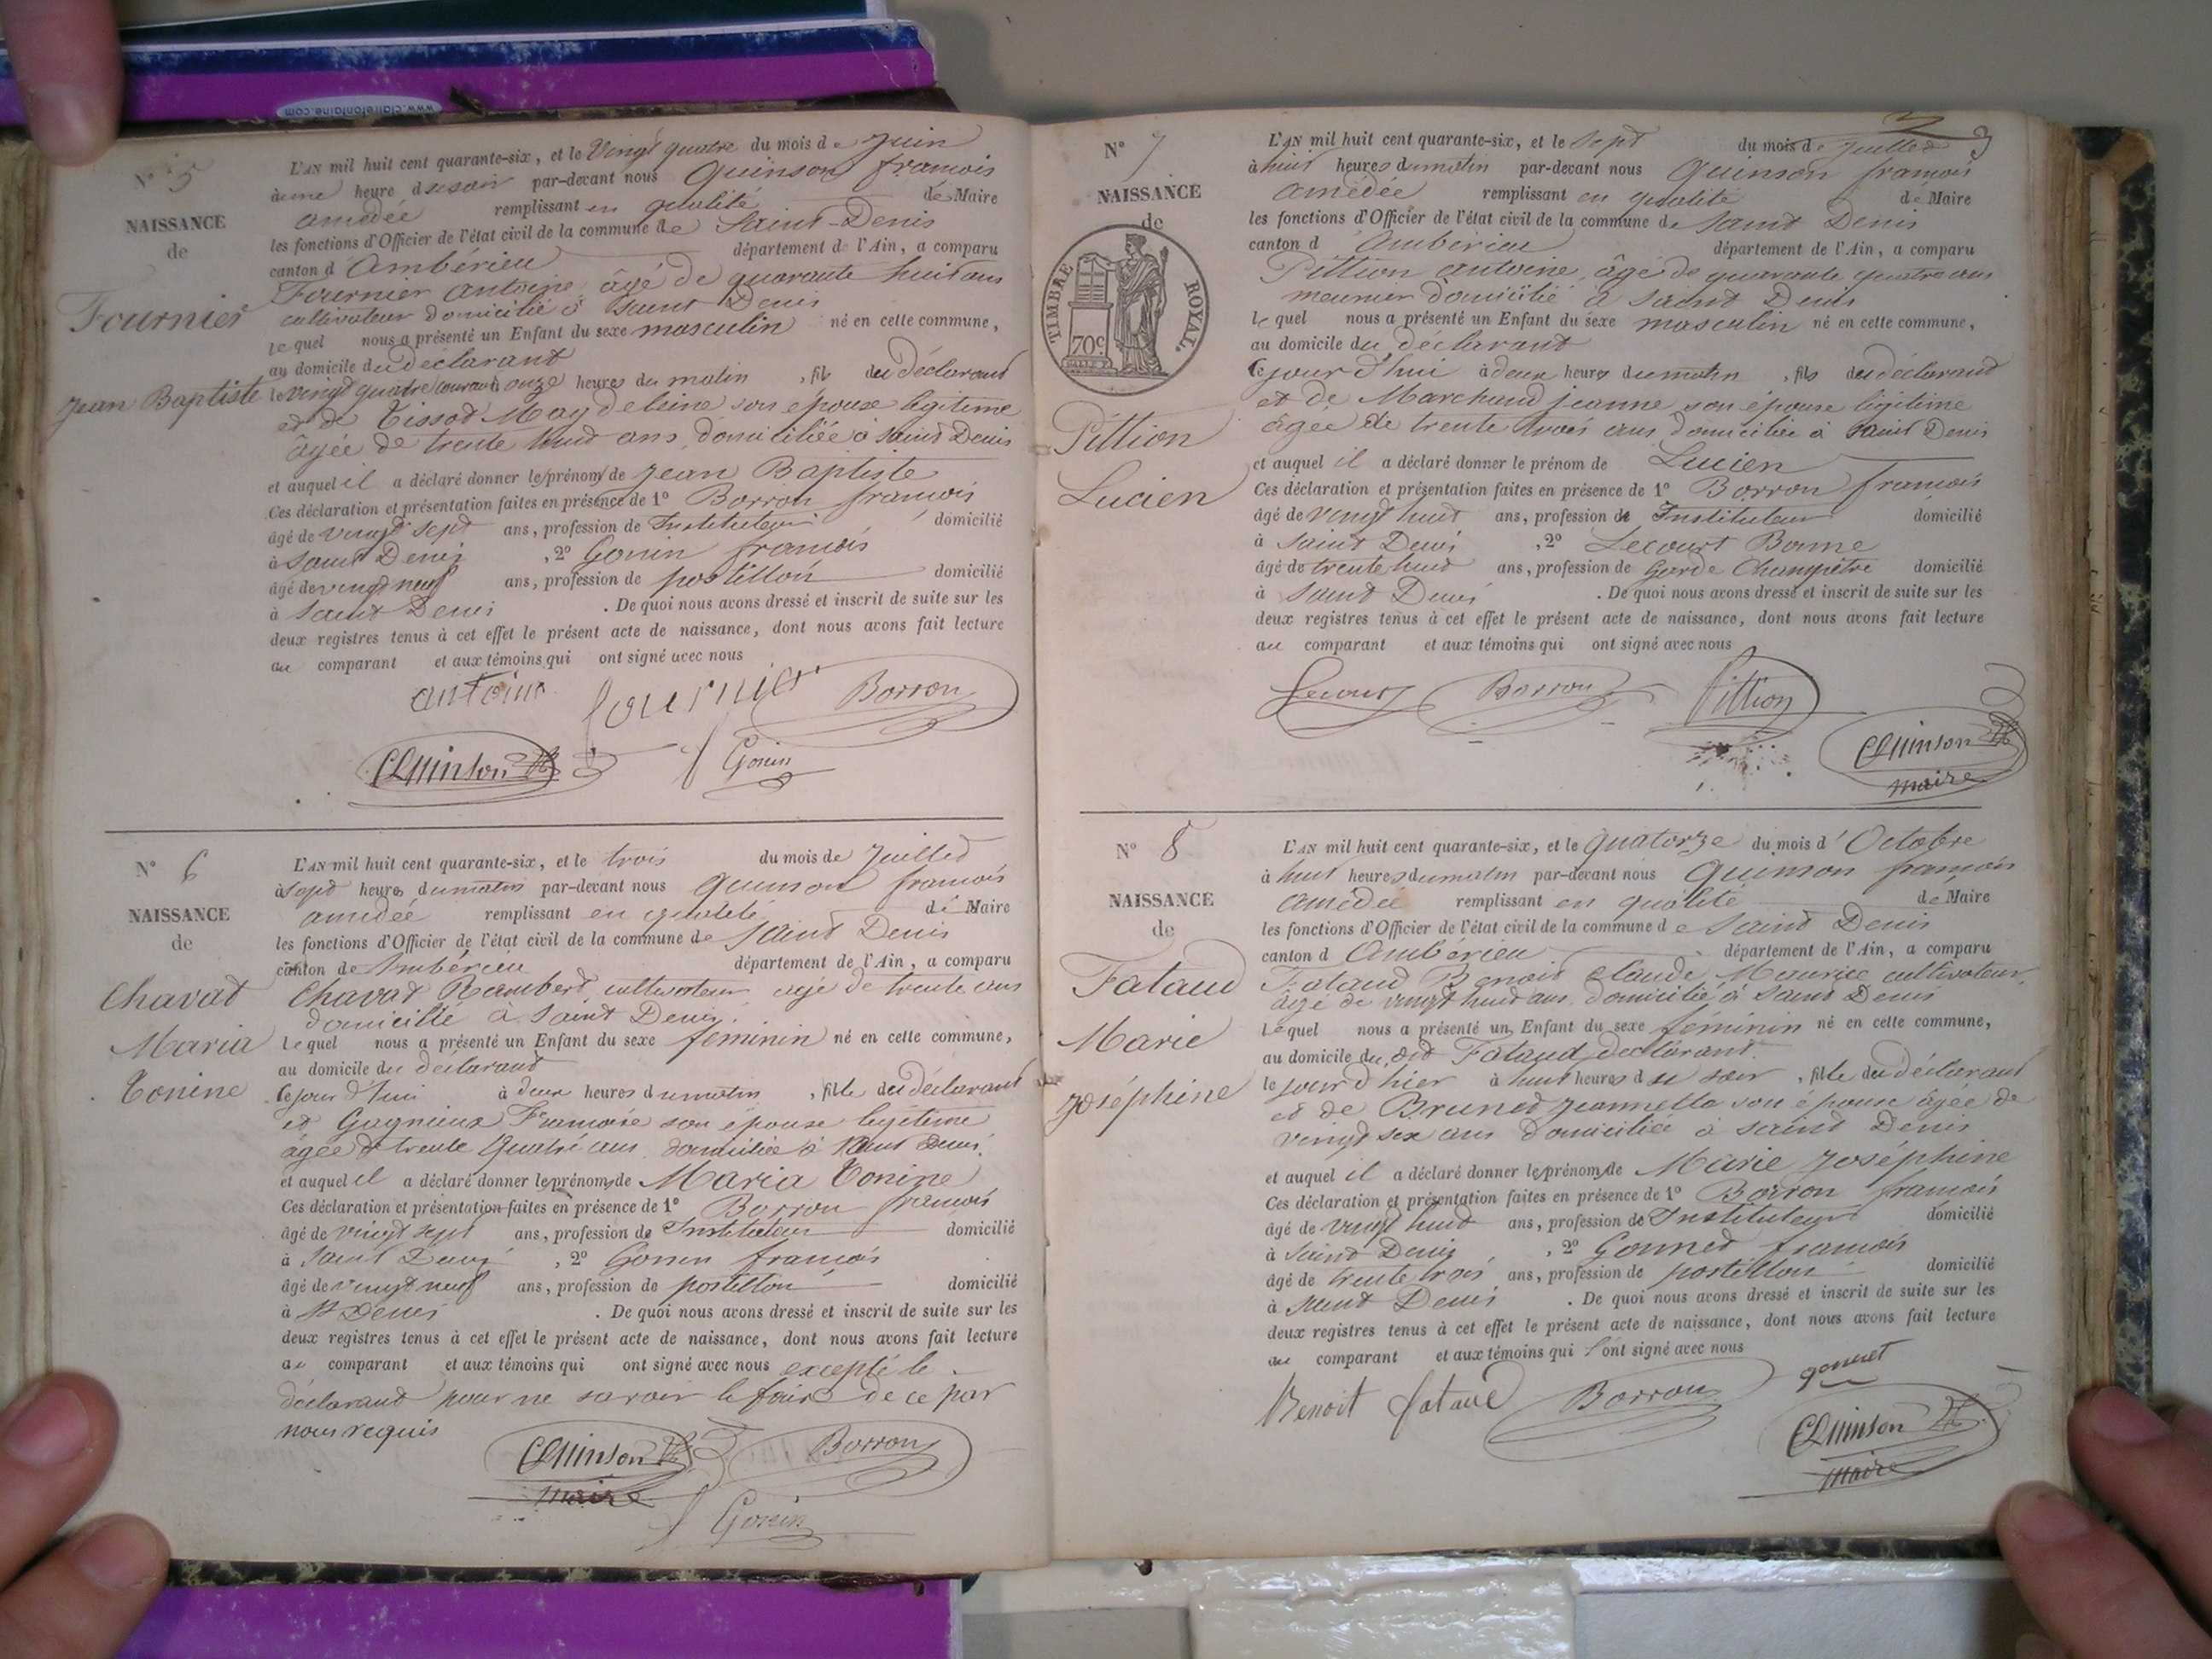 www.clairefontaine.com
N° 5
NAISSANCE
de
Fournier
Jean Baptiste
L'AN mil huit cent quarante-six, et le Vingt quatre du mois de Juin
à une heure du soir par-devant nous Quinson françois
amédée remplissant en qualité de Maire
les fonctions d'Officier de l'état civil de la commune de Saint-Denis
canton d'Ambérieu département de l'Ain, a comparu
Fournier Antoine, âgé de quarante huit ans
cultivateur domicilié à Saint Denis
lequel nous a présenté un Enfant du sexe masculin né en cette commune,
au domicile du déclarant
le vingt quatre courant à onze heures du matin, fils du déclarant
et de Tissot Magdeleine son épouse légitime
âgée de trente huit ans, domiciliée à Saint Denis
et auquel il a déclaré donner le prénom de Jean Baptiste
Ces déclaration et présentation faites en présence de 1° Borron françois
âgé de vingt sept ans, profession de Instituteur domicilié
à Saint Denis, 2° Gonin françois
âgé de vingt neuf ans, profession de postillon domicilié
à Saint Denis. De quoi nous avons dressé et inscrit de suite sur les
deux registres tenus à cet effet le présent acte de naissance, dont nous avons fait lecture
au comparant et aux témoins qui ont signé avec nous
antoine fournier Borron
Quinson f Gonin
N° 6
NAISSANCE
de
Chavat
Maria
Tonine
L'AN mil huit cent quarante-six, et le trois du mois de Juillet
à sept heures du matin par-devant nous Quinson françois
amédée remplissant en qualité de Maire
les fonctions d'Officier de l'état civil de la commune de Saint Denis
canton de Ambérieu département de l'Ain, a comparu
Chavat Rambert, cultivateur âgé de trente ans
domicilié à Saint Denis
lequel nous a présenté un Enfant du sexe féminin né en cette commune,
au domicile du déclarant
Cejourd'hui à deux heures du matin, fille du déclarant
et Gagnieux Françoise son épouse légitime
âgée de trente quatre ans domiciliée à Saint Denis.
et auquel il a déclaré donner le prénom de Maria Tonine
Ces déclaration et présentation faites en présence de 1° Borron françois
âgé de vingt sept ans, profession de Instituteur domicilié
à Saint Denis, 2° Gonin françois
âgé de vingt neuf ans, profession de postillon domicilié
à St Denis. De quoi nous avons dressé et inscrit de suite sur les
deux registres tenus à cet effet le présent acte de naissance, dont nous avons fait lecture
au comparant et aux témoins qui ont signé avec nous excepté le
déclarant pour ne savoir le faire de ce par
nous requis
Quinson Borron
maire
f Gonin
3
N° 7
NAISSANCE
de
TIMBRE ROYAL.
70c
Pittion
Lucien
L'AN mil huit cent quarante-six, et le sept du mois de Juillet
à huit heures du matin par-devant nous Quinson françois
amédée remplissant en qualité de Maire
les fonctions d'Officier de l'état civil de la commune de Saint Denis
canton d Ambérieu département de l'Ain, a comparu
Pittion Antoine, âgé de quarante quatre ans
meunier domicilié à Saint Denis
lequel nous a présenté un Enfant du sexe masculin né en cette commune,
au domicile du déclarant
Cejourd'hui à deux heures du matin, fils du déclarant
et de Marchand Jeanne son épouse légitime
âgée de trente trois ans domiciliée à Saint Denis
et auquel il a déclaré donner le prénom de Lucien
Ces déclaration et présentation faites en présence de 1° Borron françois
âgé de vingt huit ans, profession de Instituteur domicilié
à Saint Denis, 2° Lecourt Bonne
âgé de trente huit ans, profession de Garde Champêtre domicilié
à Saint Denis. De quoi nous avons dressé et inscrit de suite sur les
deux registres tenus à cet effet le présent acte de naissance, dont nous avons fait lecture
au comparant et aux témoins qui ont signé avec nous
Lecourt Borron Pittion
Quinson
maire
N° 8
NAISSANCE
de
Fataud
Marie
Joséphine
L'AN mil huit cent quarante-six, et le quatorze du mois d'Octobre
à huit heures du matin par-devant nous Quinson françois
amédée remplissant en qualité de Maire
les fonctions d'Officier de l'état civil de la commune de Saint Denis
canton d Ambérieu département de l'Ain, a comparu
Fataud Benoit Claude Maurice cultivateur,
âgé de vingt huit ans domicilié à Saint Denis
lequel nous a présenté un Enfant du sexe féminin né en cette commune,
au domicile du dit Fataud déclarant
le jour d'hier à huit heures du soir, fille du déclarant
et de Brunet Jeannette son épouse âgée de
vingt six ans domiciliée à Saint Denis
et auquel il a déclaré donner le prénom de Marie Joséphine
Ces déclaration et présentation faites en présence de 1° Borron françois
âgé de vingt huit ans, profession de Instituteur domicilié
à Saint Denis, 2° Gonnet françois
âgé de trente trois ans, profession de postillon domicilié
à Saint Denis. De quoi nous avons dressé et inscrit de suite sur les
deux registres tenus à cet effet le présent acte de naissance, dont nous avons fait lecture
au comparant et aux témoins qui l'ont signé avec nous
Benoit fataud Borron gonnet
Quinson
maire